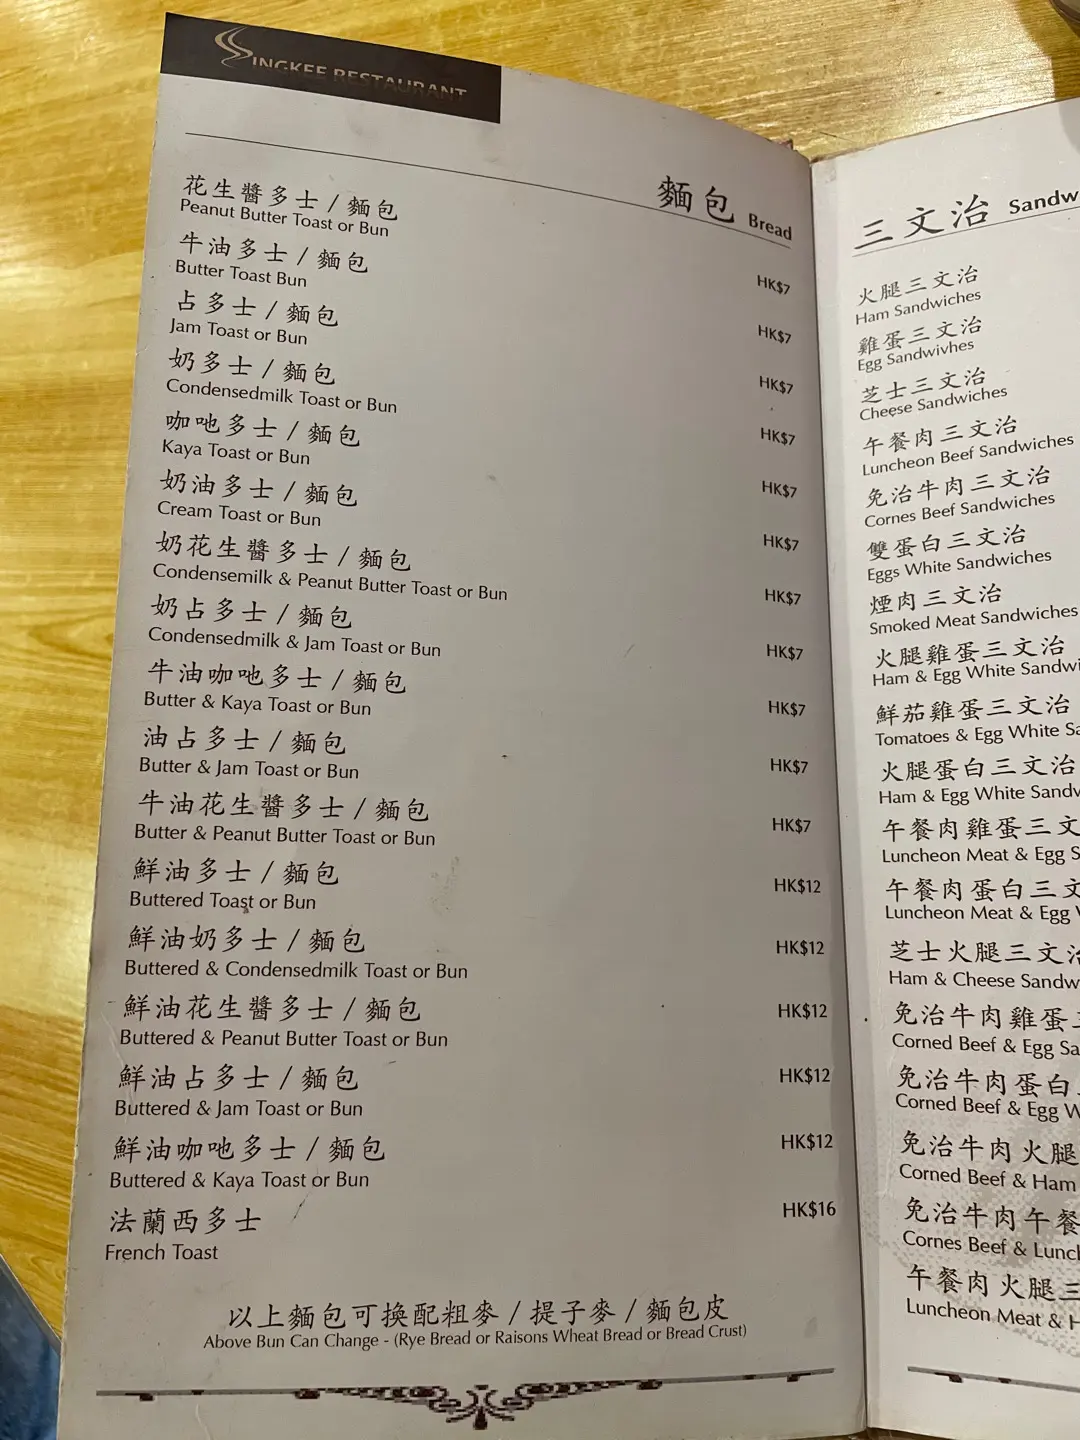 SINGKEE RESTAURANT
麵包 Bread
花生醬多士 / 麵包
Peanut Butter Toast or Bun
HK$7
牛油多士 / 麵包
Butter Toast Bun
HK$7
占多士 / 麵包
Jam Toast or Bun
HK$7
奶多士 / 麵包
Condensedmilk Toast or Bun
HK$7
咖吔多士 / 麵包
Kaya Toast or Bun
HK$7
奶油多士 / 麵包
Cream Toast or Bun
HK$7
奶花生醬多士 / 麵包
Condensemilk & Peanut Butter Toast or Bun
HK$7
奶占多士 / 麵包
Condensedmilk & Jam Toast or Bun
HK$7
牛油咖吔多士 / 麵包
Butter & Kaya Toast or Bun
HK$7
油占多士 / 麵包
Butter & Jam Toast or Bun
HK$7
牛油花生醬多士 / 麵包
Butter & Peanut Butter Toast or Bun
HK$7
鮮油多士 / 麵包
Buttered Toast or Bun
HK$12
鮮油奶多士 / 麵包
Buttered & Condensedmilk Toast or Bun
HK$12
鮮油花生醬多士 / 麵包
Buttered & Peanut Butter Toast or Bun
HK$12
鮮油占多士 / 麵包
Buttered & Jam Toast or Bun
HK$12
鮮油咖吔多士 / 麵包
Buttered & Kaya Toast or Bun
HK$12
法蘭西多士
French Toast
HK$16
以上麵包可換配粗麥 / 提子麥 / 麵包皮
Above Bun Can Change - (Rye Bread or Raisons Wheat Bread or Bread Crust)
三文治 Sandw
火腿三文治
Ham Sandwiches
雞蛋三文治
Egg Sandwivhes
芝士三文治
Cheese Sandwiches
午餐肉三文治
Luncheon Beef Sandwiches
免治牛肉三文治
Cornes Beef Sandwiches
雙蛋白三文治
Eggs White Sandwiches
煙肉三文治
Smoked Meat Sandwiches
火腿雞蛋三文治
Ham & Egg White Sandwi
鮮茄雞蛋三文治
Tomatoes & Egg White Sa
火腿蛋白三文治
Ham & Egg White Sandw
午餐肉雞蛋三文
Luncheon Meat & Egg S
午餐肉蛋白三文
Luncheon Meat & Egg
芝士火腿三文治
Ham & Cheese Sandw
免治牛肉雞蛋三
Corned Beef & Egg Sa
免治牛肉蛋白
Corned Beef & Egg W
免治牛肉火腿
Corned Beef & Ham
免治牛肉午餐
Cornes Beef & Lunch
午餐肉火腿三
Luncheon Meat & H